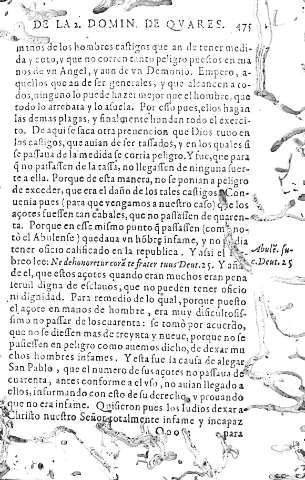 DE LA 2. DOMIN. DE QVARES. 475
manos de los hombres castigos que an de tener medi
da y coto, y que no corren tanto peligro puestos en ma
nos de vn Angel, y aun de vn Demonio. Empero, a-
quellos que an de ser generales, y que alcancen a to-
dos, ninguno lo puede hazer mejor que el hombre, que
todo lo arrebata y lo asuela. Por esso pues, ellos hagan
las demas plagas, y finalmente hundan todo el exerci
to. De aqui se saca otra preuencion que Dios tuuo en
los castigos, que auian de ser tassados, y en los quales si
se passaua de la medida se corria peligro. Y fue, que para
q̃ no passassen de la tassa, no llegassen de ninguna suer-
te a ella. Porque de esta manera, no se ponian a peligro
de exceder, que era el daño de los tales castigos. Con
uenia pues (para que vengamos a nuestro caso) que los
açotes fuessen tan cabales, que no passassen de quaren-
ta. Porque en esse mismo punto q̃ passassen (como no-
tò el Abulense) quedaua vn hõbre infame, y no podia
tener oficio calificado en la republica. Y assi el
breo lee: Ne dehonoretur corã te frater tuus Deut. 25. Y
de el, que estos açotes quando eran muchos eran pena
seruil digna de esclauos, que no pueden tener oficio
ni dignidad. Para remedio de lo qual, porque puesto
el açote en manos de hombre, era muy dificultosis-
simo no passar de los cuarenta: se tomò por acuerdo,
que no se diessen mas de treynta y nueue, porque no se
pusiessen en peligro como auemos dicho, de dexar mu
chos hombres infames. Y esta fue la causa de alegar
San Pablo, que el numero de sus açotes no passaua de
cuarenta, antes conforme a el vso, no auian llegado a
ellos, informando con esto de su derecho, y prouando
que no era infame. Quisieron pues los Iudios dexar a
Christo nuestro Señor totalmente infame y incapaz
Ooo para
Abulẽ. su-
c. Deut. 25